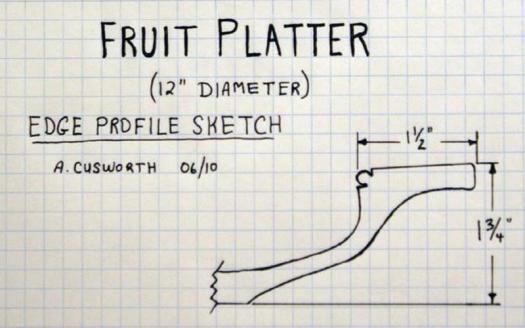 FRUIT PLATTER
(12" DIAMETER)
EDGE PROFILE SKETCH
A. CUSWORTH 06/10
1 1/2"
1 3/4"